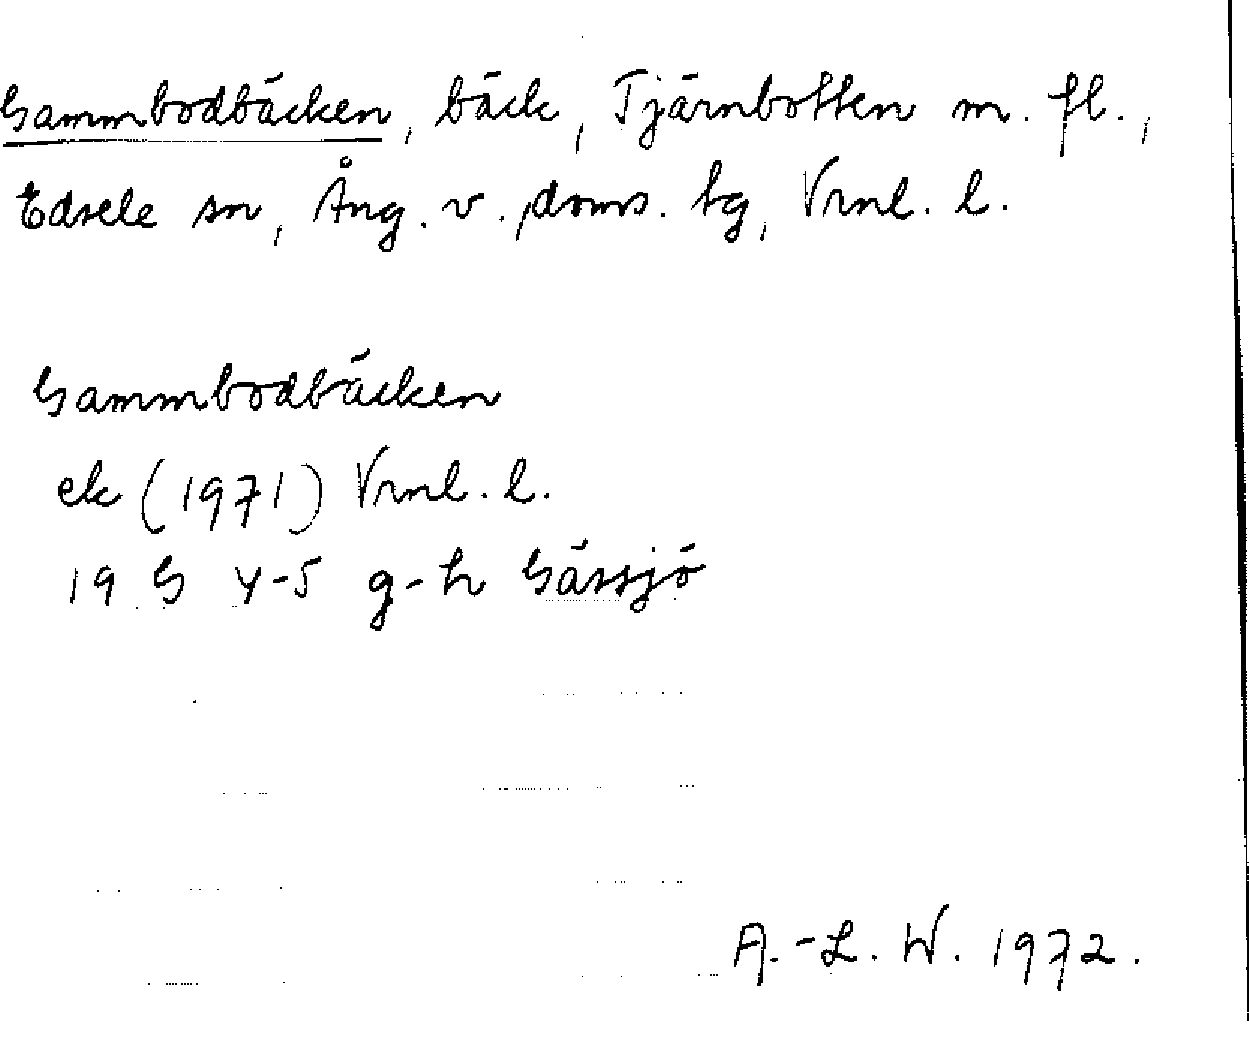 Gammbodbäcken, bäck, Tjärnbotten m. fl.,
Edsele sn, Ång. v. doms. tg, Vrnl. l.
Gammbodbäcken
ek (1971) Vrnl. l.
19 G 4-5 g-h Gåssjö
A.-L. W. 1972.